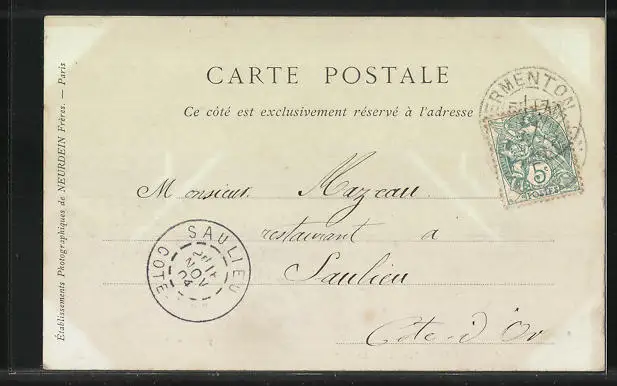 CARTE POSTALE
Ce côté est exclusivement réservé à l'adresse
Établissements Photographiques de NEURDEIN Frères. — Paris
ERMENTON
5
POSTES
Monsieur Mazeau
restaurant à
Saulieu
Cote-d'Or
SAULIEU
NOV
04
COTE